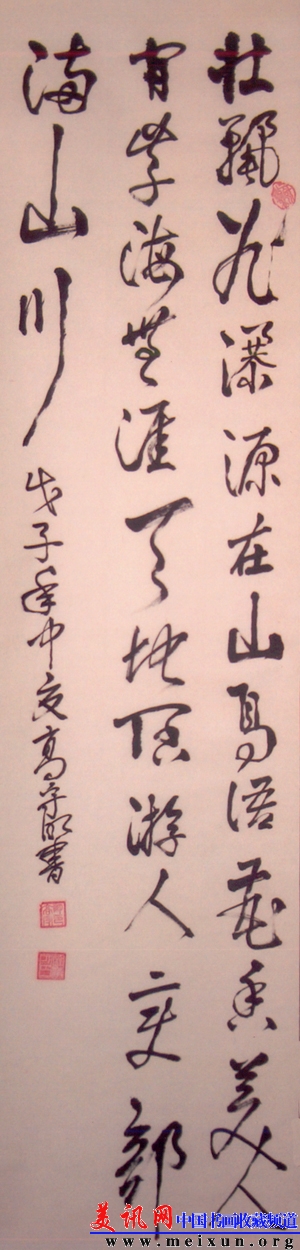 壮观飞瀑源在山鸟语花香美人
间学海無涯天地阔游人更部
满山川
戊子年中夏高守明書
美讯网 中国书画收藏频道
www.meixun.org